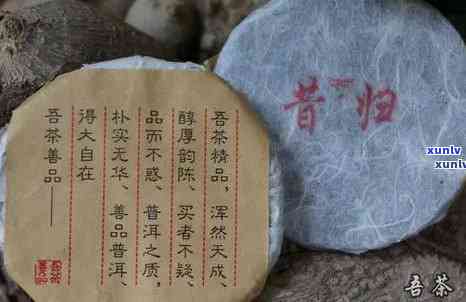 吾茶精品，浑然天成、
醇厚韵陈、买者不疑、
品而不惑、普洱之质，
朴实无华、善品普洱、
得大自在
吾茶善品——
昔归
xunlv
xunlv
吾茶